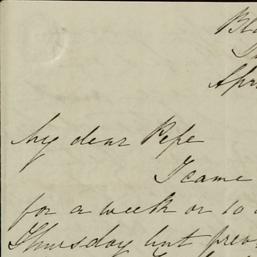 Apr
My dear Pepe
I came
for a week or to
Thursday but prev